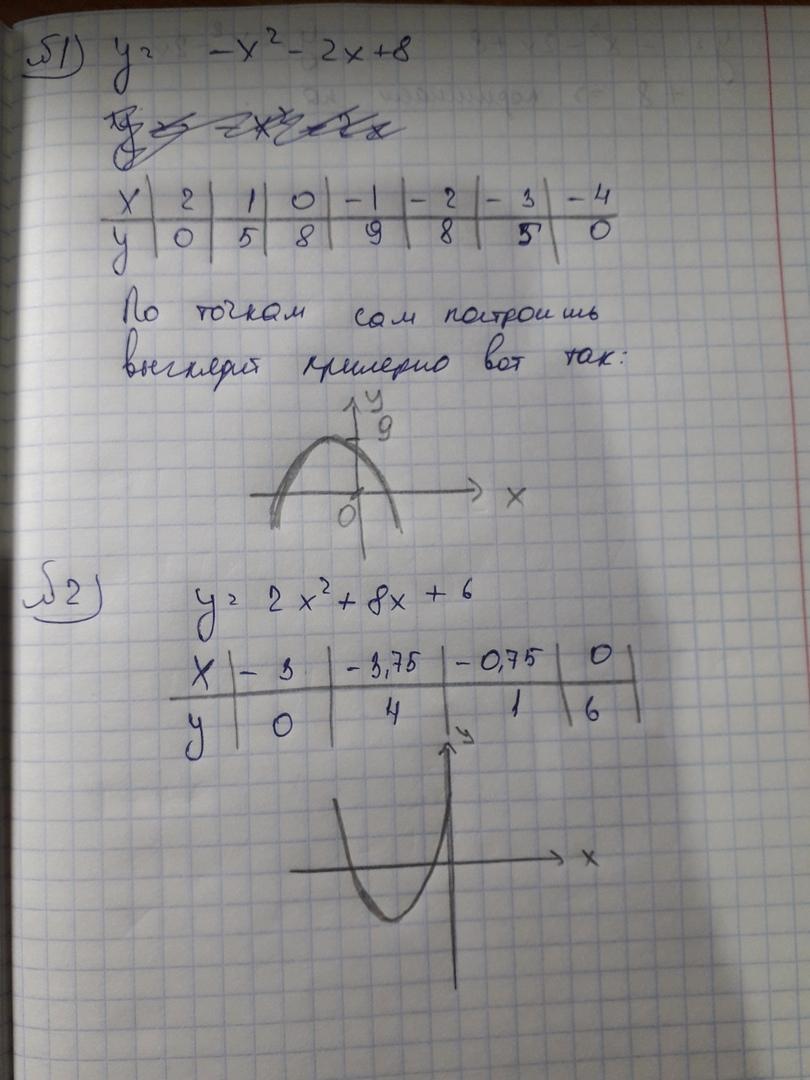 №1) y = -x² - 2x + 8
x | 2 | 1 | 0 | -1 | -2 | -3 | -4
y | 0 | 5 | 8 | 9 | 8 | 5 | 0
По точкам сам построишь
выглядит примерно вот так:
y
9
0
x
№2) y = 2x² + 8x + 6
x | -3 | -3,75 | -0,75 | 0
y | 0 | 4 | 1 | 6
y
x